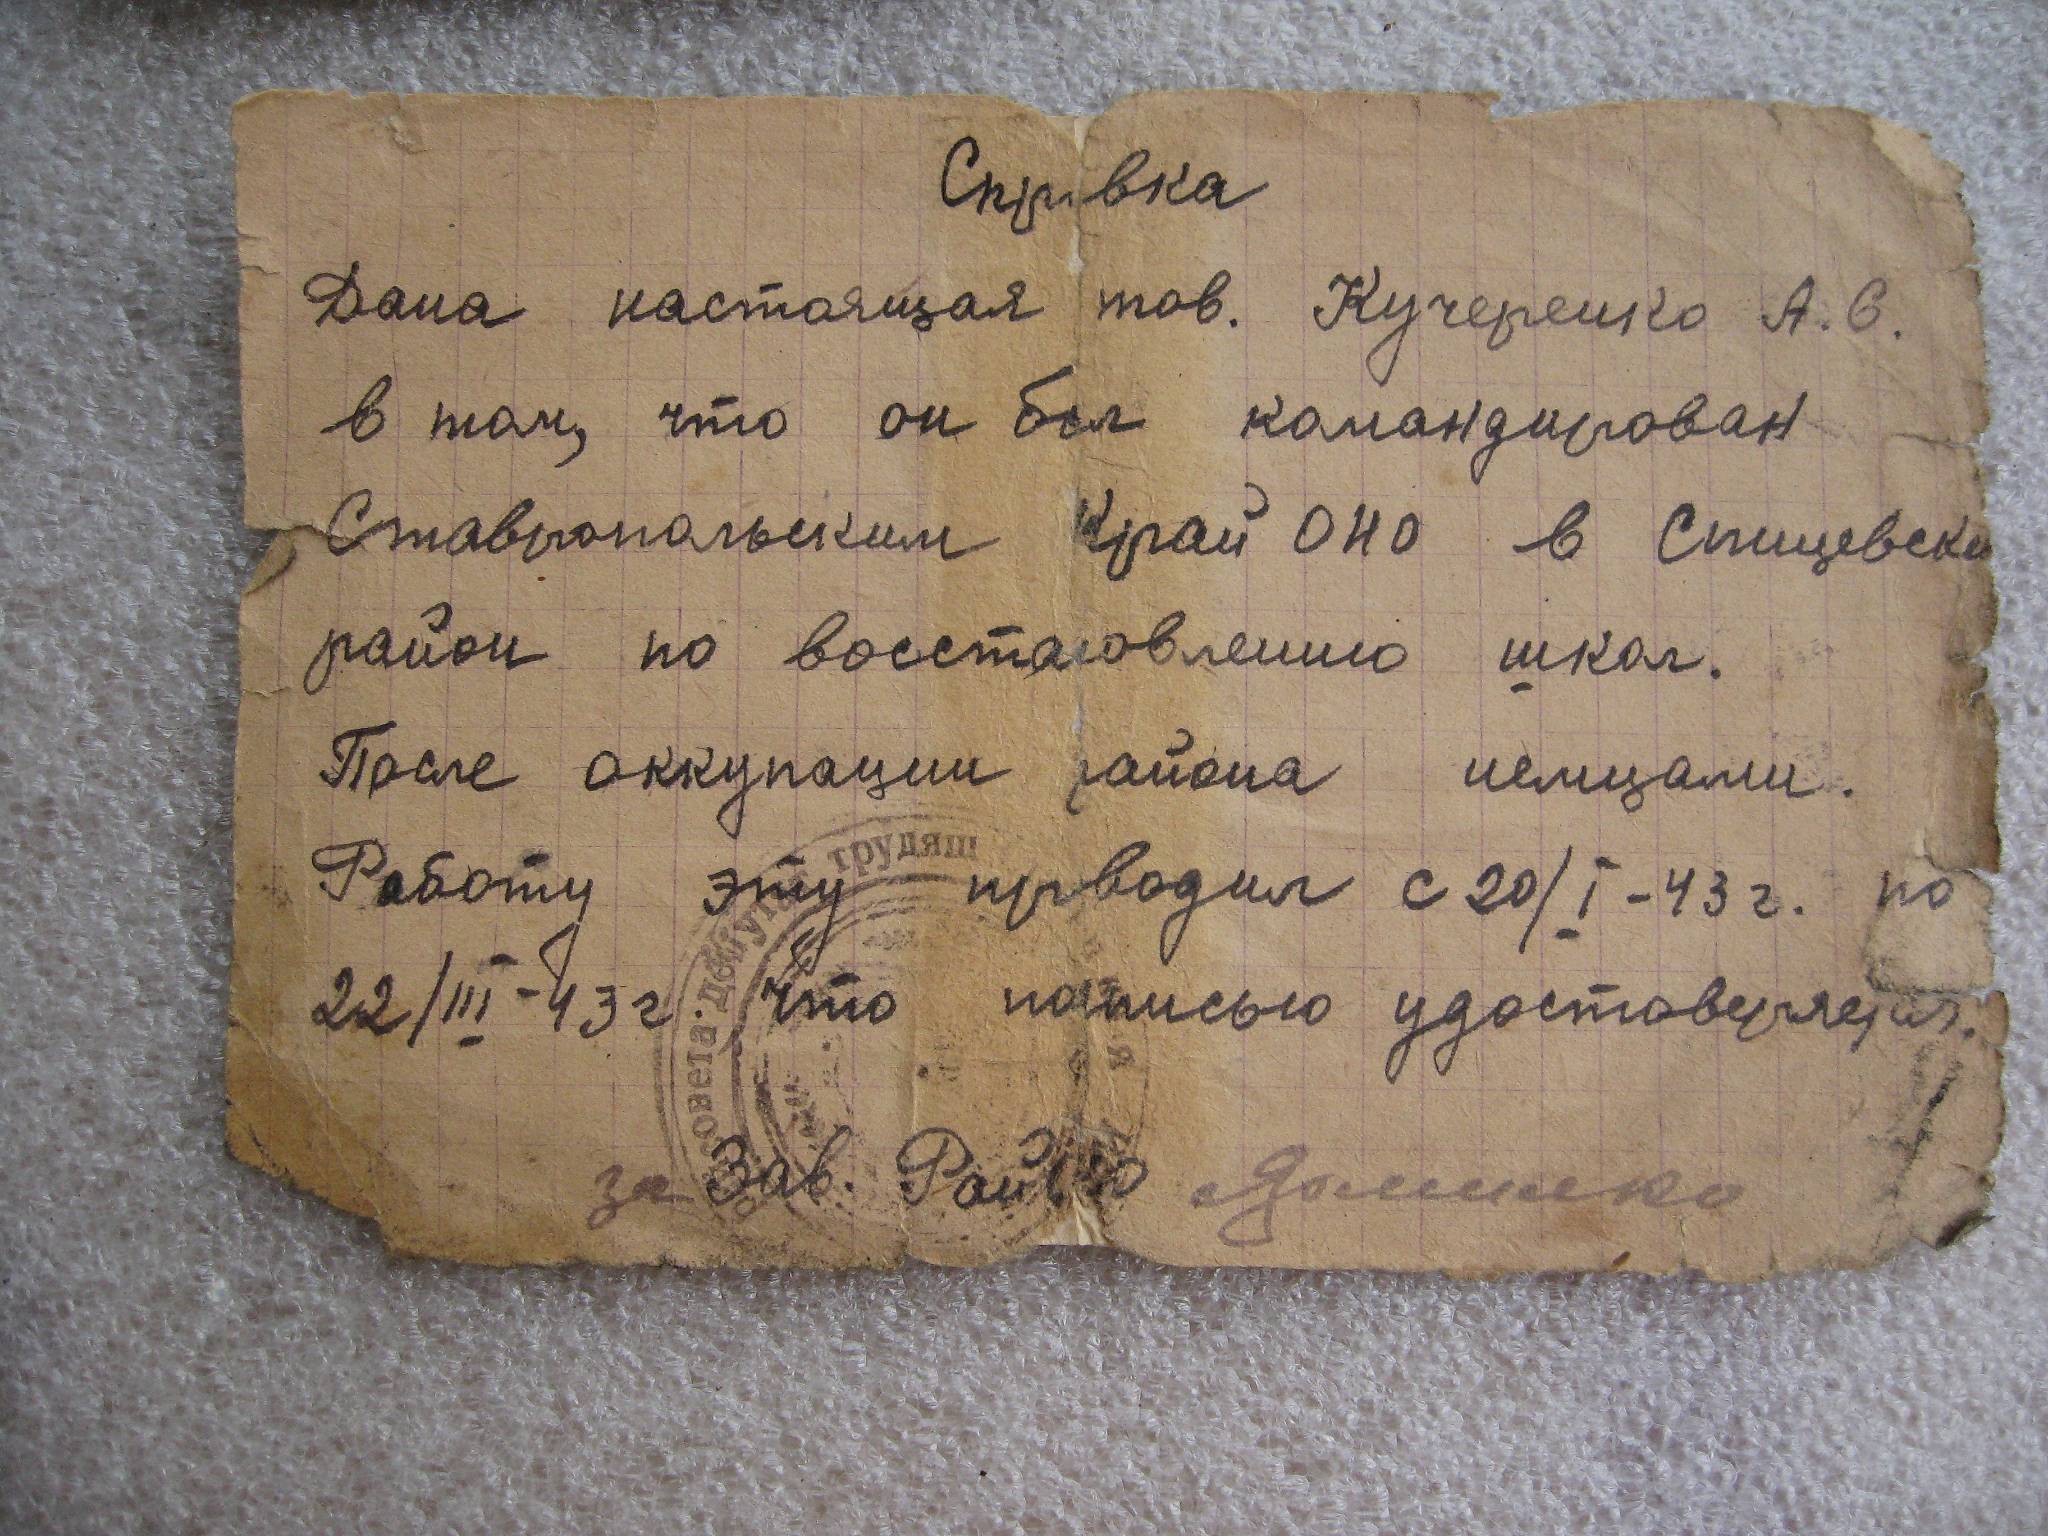 Справка
Дана настоящая тов. Кучеренко А.С.
в том, что он был командирован
Ставропольским Край ОНО в Спицевски
район по восстановлению школ.
После оккупации района немцами.
Работу эту проводил с 20/I-43г. по
22/III-43г. Что подписью удостоверяется.
за Зав. РайОНО
совета депутат трудящ